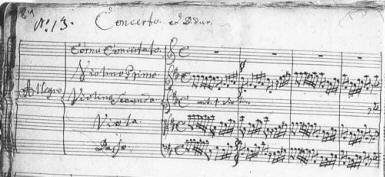 No. 13. Concerto. ex D dur.
Corno Concertato.
Violino Primo
Allegro
Violino Secundo
Viola
Basso.